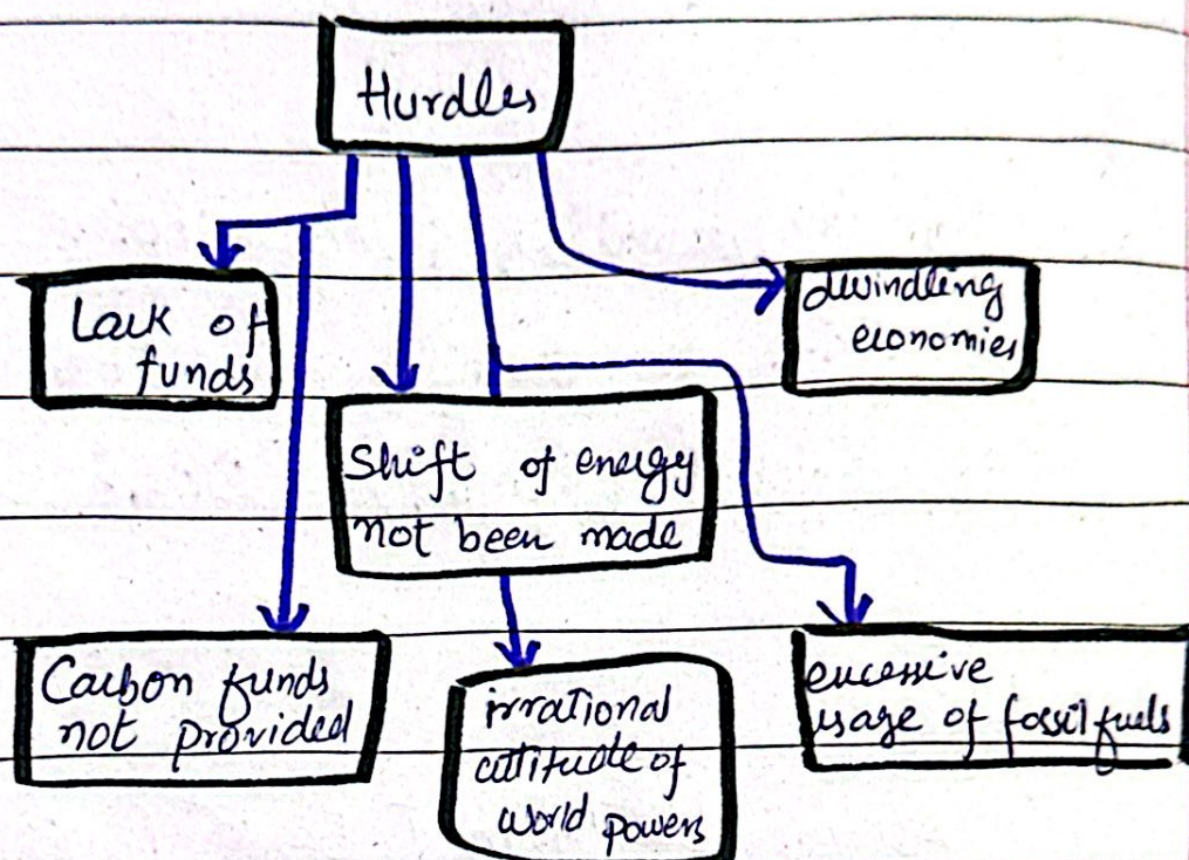 Hurdles
Lack of
funds
dwindling
economies
Shift of energy
not been made
Carbon funds
not provided
irrational
attitude of
world powers
excessive
usage of fossil fuels